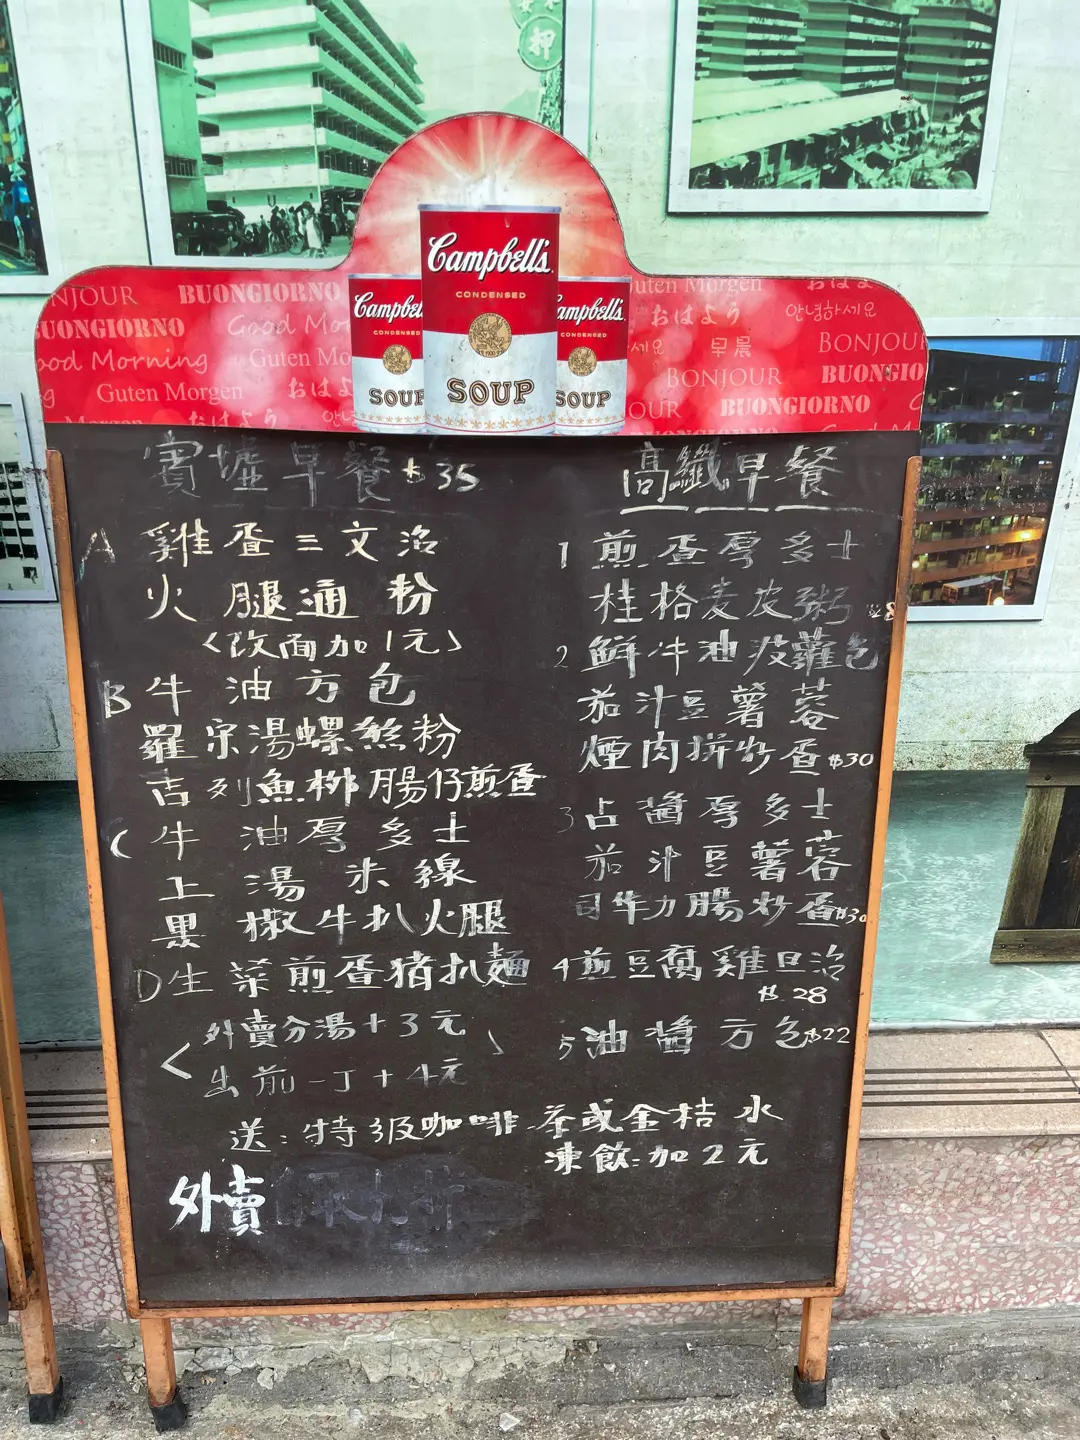 押
Campbell's
CONDENSED
SOUP
Campbell's
CONDENSED
SOUP
Campbell's
CONDENSED
SOUP
BONJOUR BUONGIORNO
BUONGIORNO Good Mo
Good Morning Guten Mo
Guten Morgen おはよ
Guten Morgen おはよ
おはよう 안녕하세요
早晨 BONJOUR
BONJOUR BUONGIO
BUONGIORNO
賓墟早餐 $35
A 雞蛋三文治
火腿通粉
<改面加1元>
B 牛油方包
羅宋湯螺絲粉
吉列魚柳腸仔煎蛋
C 牛油厚多士
上湯米線
黑椒牛扒火腿
D 生菜煎蛋豬扒麵
<外賣分湯+3元
出前一丁+4元>
送:特級咖啡.茶或金桔水
凍飲:加2元
外賣
高纖早餐
1 煎蛋厚多士
桂格麦皮粥
2 鮮牛油菠蘿包
茄汁豆薯蓉
煙肉拼炒蛋$30
3 占醬厚多士
茄汁豆薯蓉
司华力腸炒蛋$30
4 煎豆腐雞旦治
$28
5 油醬方包$22